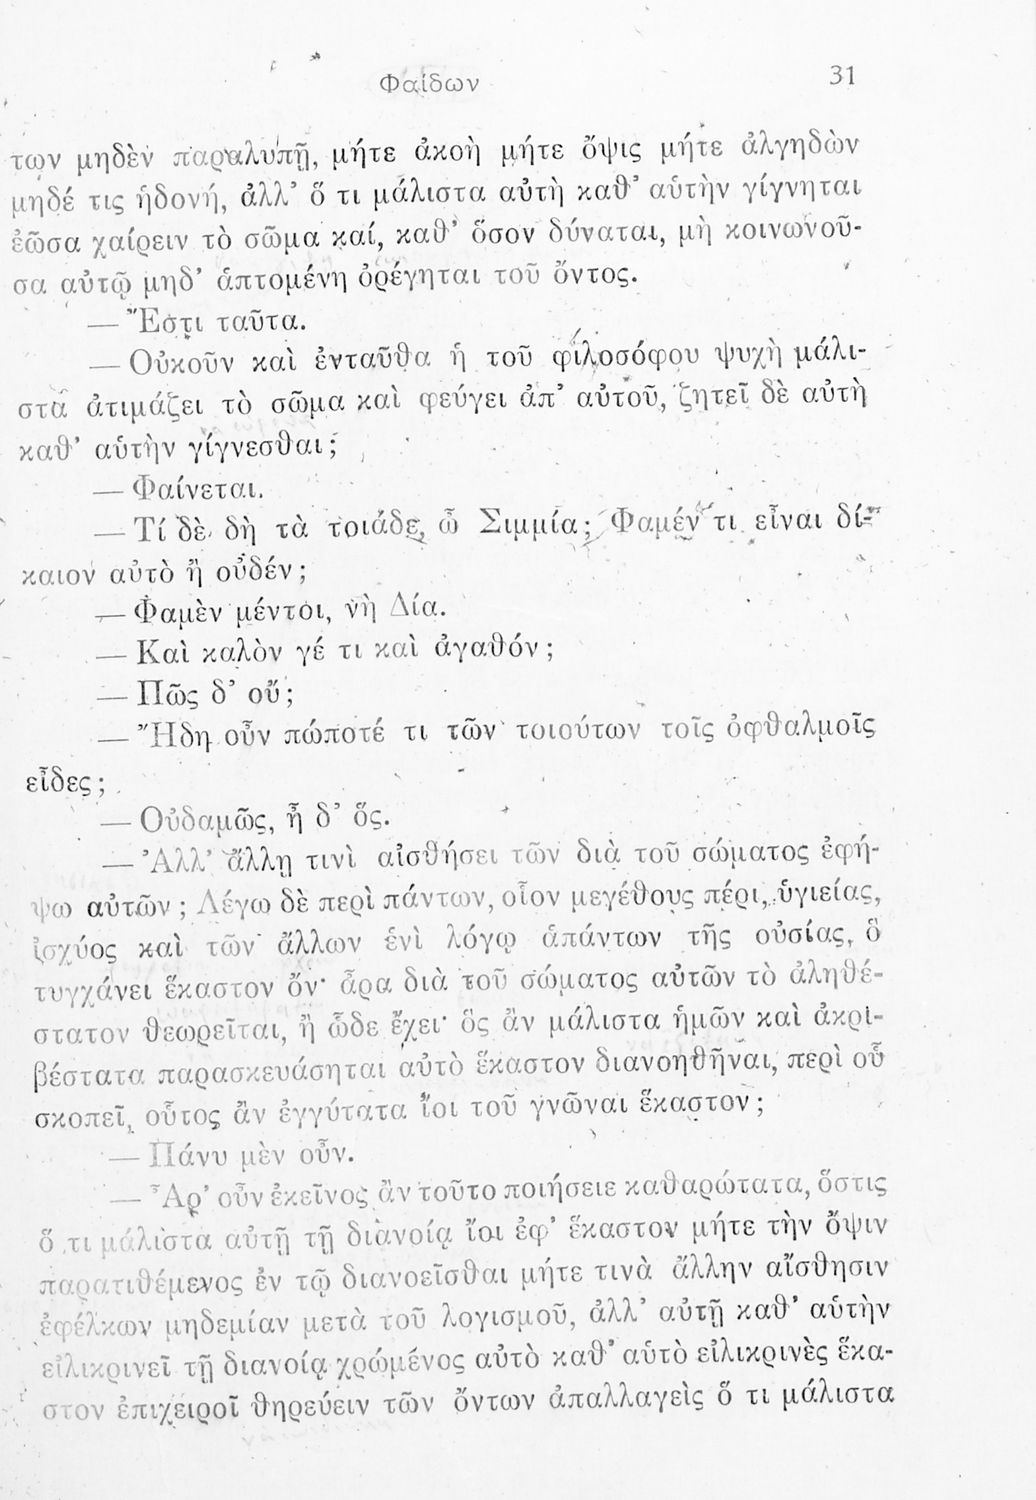 Φαίδων 31
των μηδὲν παραλυπῇ, μήτε ἀκοὴ μήτε ὄψις μήτε ἀλγηδὼν
μηδέ τις ἡδονή, ἀλλ’ ὅ τι μάλιστα αὐτὴ καθ’ αὑτὴν γίγνηται
ἐῶσα χαίρειν τὸ σῶμα καί, καθ’ ὅσον δύναται, μὴ κοινωνοῦ-
σα αὐτῷ μηδ’ ἁπτομένη ὀρέγηται τοῦ ὄντος.
— Ἔστι ταῦτα.
— Οὐκοῦν καὶ ἐνταῦθα ἡ τοῦ φιλοσόφου ψυχὴ μάλι-
στα ἀτιμάζει τὸ σῶμα καὶ φεύγει ἀπ’ αὐτοῦ, ζητεῖ δὲ αὐτὴ
καθ’ αὑτὴν γίγνεσθαι;
— Φαίνεται.
— Τί δὲ δὴ τὰ τοιάδε, ὦ Σιμμία; Φαμέν τι εἶναι δί-
καιον αὐτὸ ἢ οὐδέν;
— Φαμὲν μέντοι, νὴ Δία.
— Καὶ καλὸν γέ τι καὶ ἀγαθόν;
— Πῶς δ’ οὔ;
— Ἤδη οὖν πώποτέ τι τῶν τοιούτων τοῖς ὀφθαλμοῖς
εἶδες;
— Οὐδαμῶς, ἦ δ’ ὅς.
— Ἀλλ’ ἄλλῃ τινὶ αἰσθήσει τῶν διὰ τοῦ σώματος ἐφή-
ψω αὐτῶν; Λέγω δὲ περὶ πάντων, οἷον μεγέθους πέρι, ὑγιείας,
ἰσχύος καὶ τῶν ἄλλων ἑνὶ λόγῳ ἁπάντων τῆς οὐσίας, ὃ
τυγχάνει ἕκαστον ὄν· ἆρα διὰ τοῦ σώματος αὐτῶν τὸ ἀληθέ-
στατον θεωρεῖται, ἢ ὧδε ἔχει· ὃς ἂν μάλιστα ἡμῶν καὶ ἀκρι-
βέστατα παρασκευάσηται αὐτὸ ἕκαστον διανοηθῆναι, περὶ οὗ
σκοπεῖ, οὗτος ἂν ἐγγύτατα ἴοι τοῦ γνῶναι ἕκαστον;
— Πάνυ μὲν οὖν.
— Ἆρ’ οὖν ἐκεῖνος ἂν τοῦτο ποιήσειε καθαρώτατα, ὅστις
ὅ τι μάλιστα αὐτῇ τῇ διανοίᾳ ἴοι ἐφ’ ἕκαστον μήτε τὴν ὄψιν
παρατιθέμενος ἐν τῷ διανοεῖσθαι μήτε τινὰ ἄλλην αἴσθησιν
ἐφέλκων μηδεμίαν μετὰ τοῦ λογισμοῦ, ἀλλ’ αὐτῇ καθ’ αὑτὴν
εἰλικρινεῖ τῇ διανοίᾳ χρώμενος αὐτὸ καθ’ αὑτὸ εἰλικρινὲς ἕκα-
στον ἐπιχειροῖ θηρεύειν τῶν ὄντων ἀπαλλαγεὶς ὅ τι μάλιστα